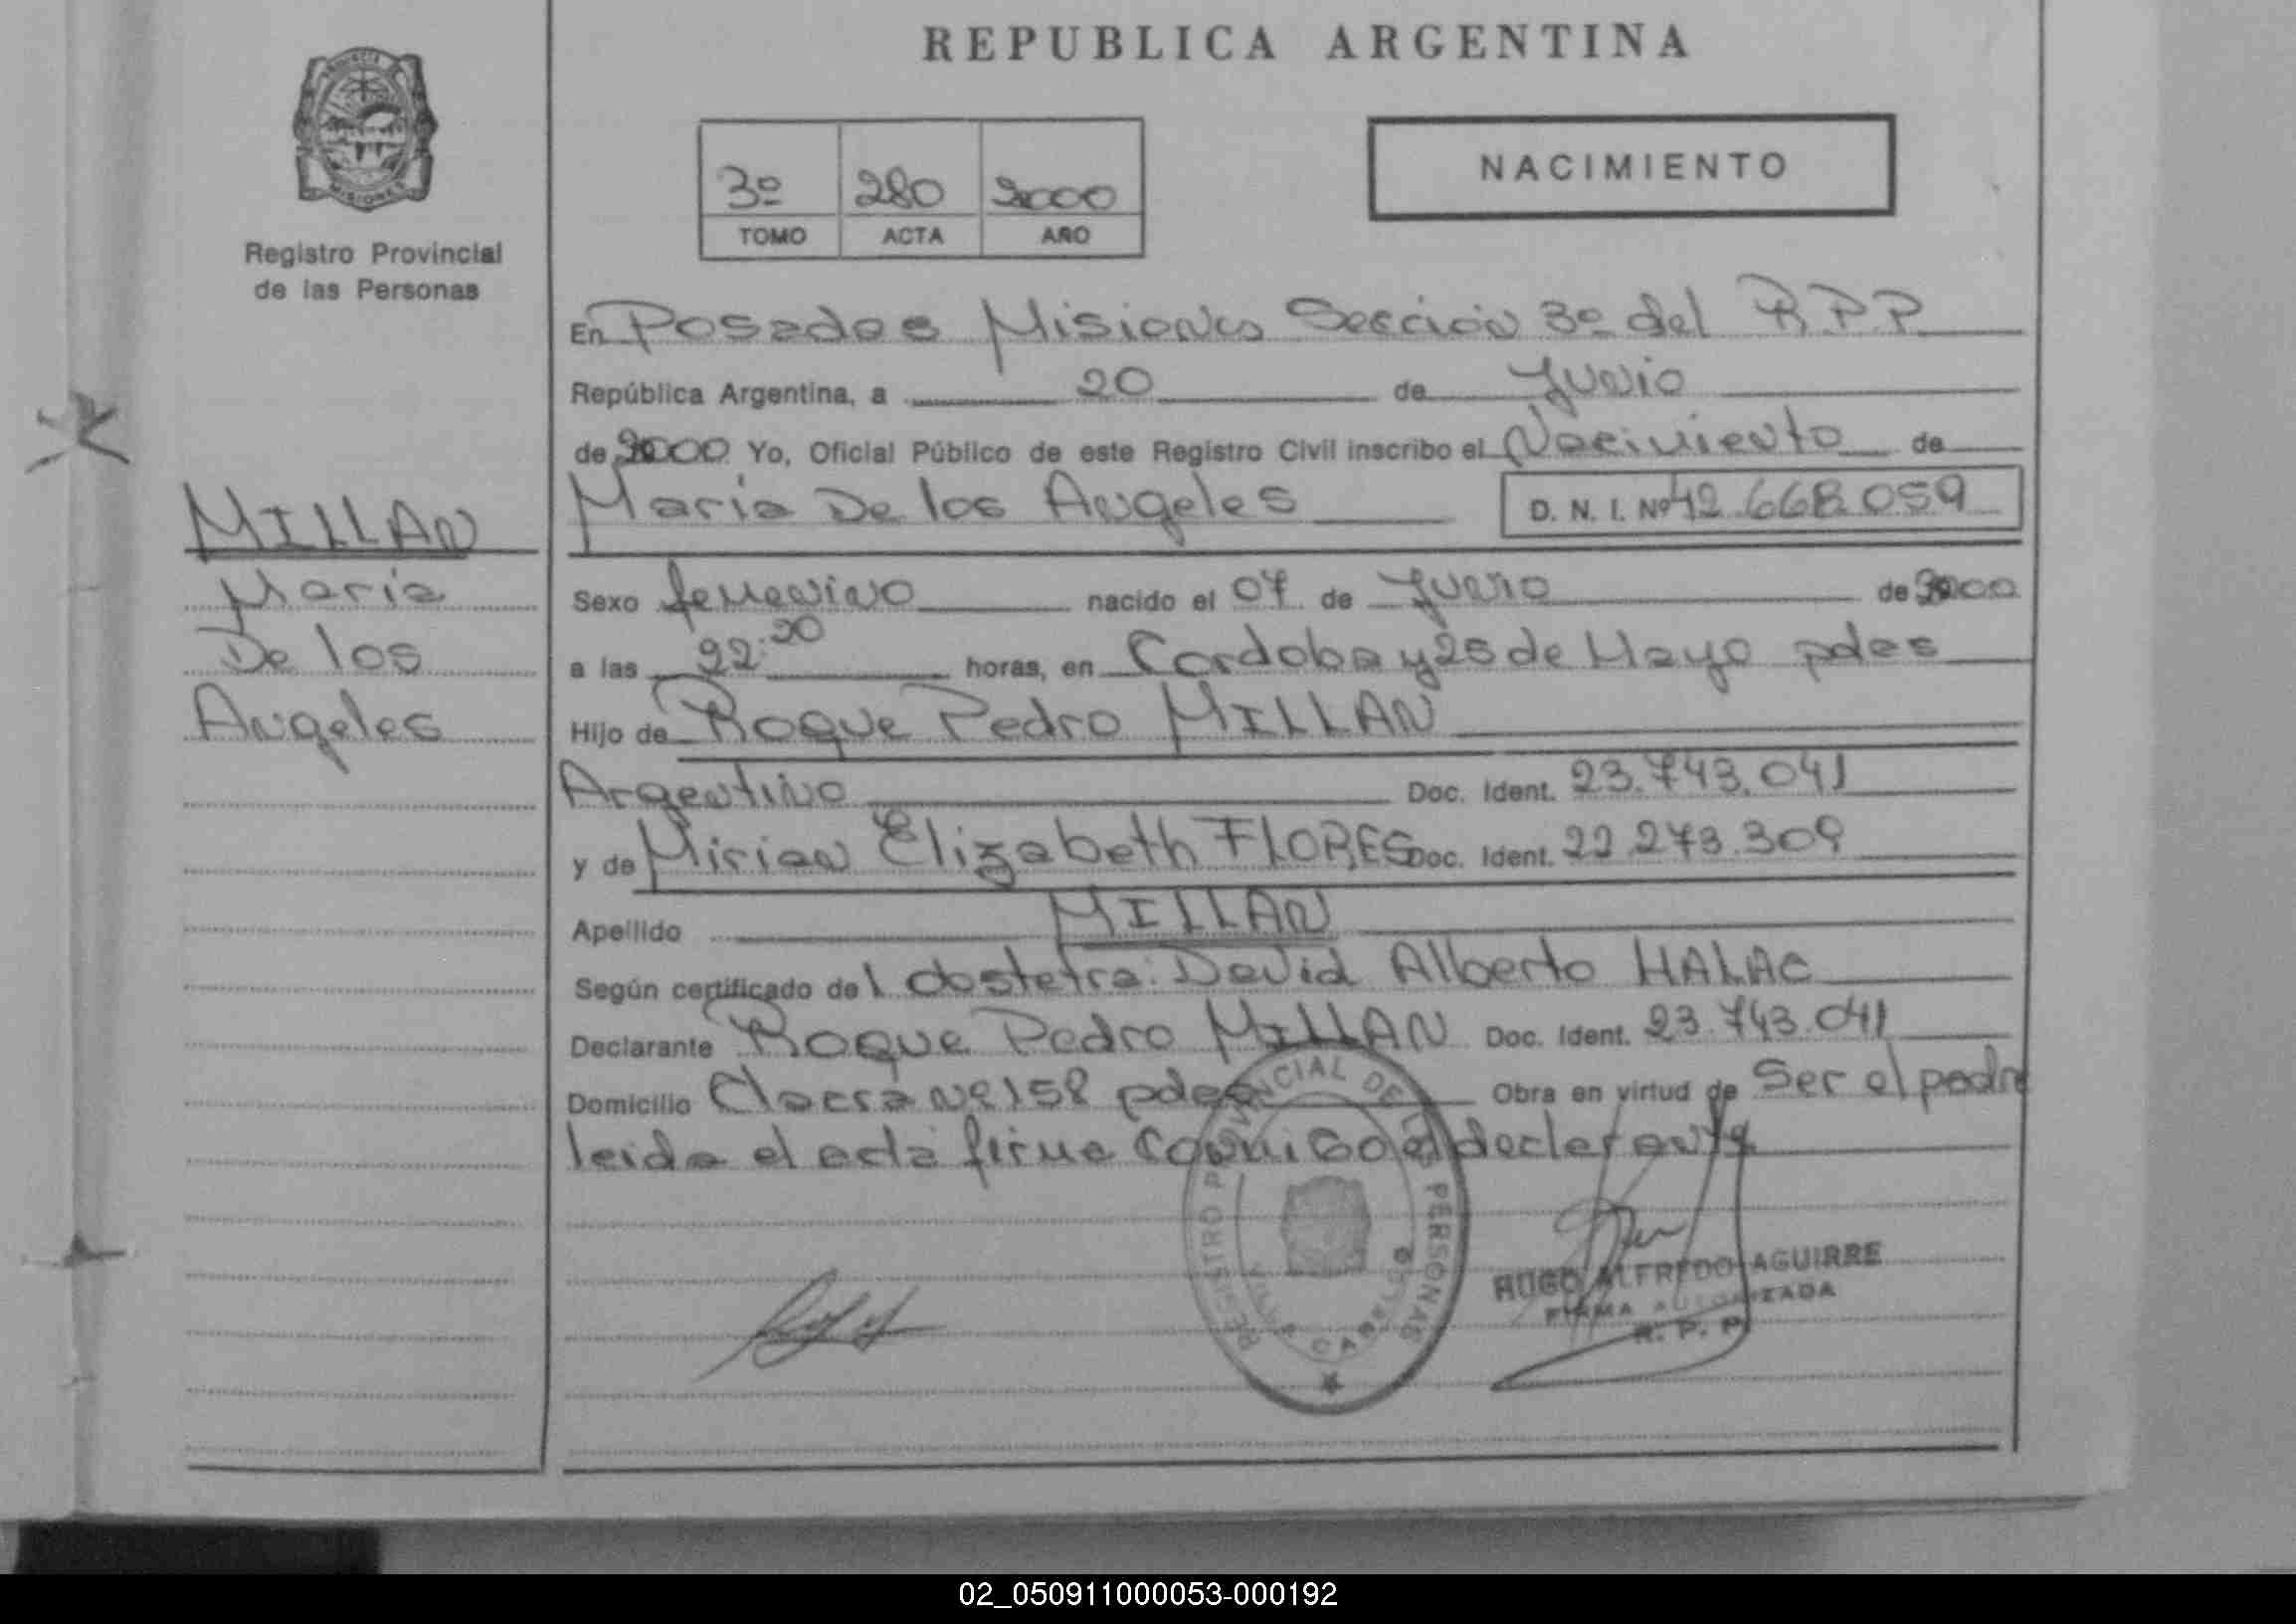 REPUBLICA ARGENTINA
PROVINCIA
MISIONES
Registro Provincial
de las Personas
3º 280 2000
TOMO ACTA AÑO
NACIMIENTO
En Posadas Misiones Sección 3º del R.P.P.
República Argentina, a 20 de Junio
de 2000 Yo, Oficial Público de este Registro Civil inscribo el Nacimiento de
Maria De los Angeles D. N. I. Nº 42.668.059
MILLAN
Maria
De los
Angeles
Sexo femenino nacido el 07 de Junio de 2000
a las 22:20 horas, en Cordoba y 25 de Mayo pdas
Hijo de Roque Pedro MILLAN
Argentino Doc. Ident. 23.743.041
y de Mirian Elizabeth FLORES Doc. Ident. 22.273.309
Apellido MILLAN
Según certificado del obstetra: David Alberto HALAC
Declarante Roque Pedro MILLAN Doc. Ident. 23.743.041
Domicilio Chacra Nº 158 pdas Obra en virtud de Ser el padre
leida el acta firma conmigo el declarante
REGISTRO PROVINCIAL DE LAS PERSONAS
VILLA CABELLO
HUGO ALFREDO AGUIRRE
FIRMA AUTORIZADA
R. P. P.
02_050911000053-000192